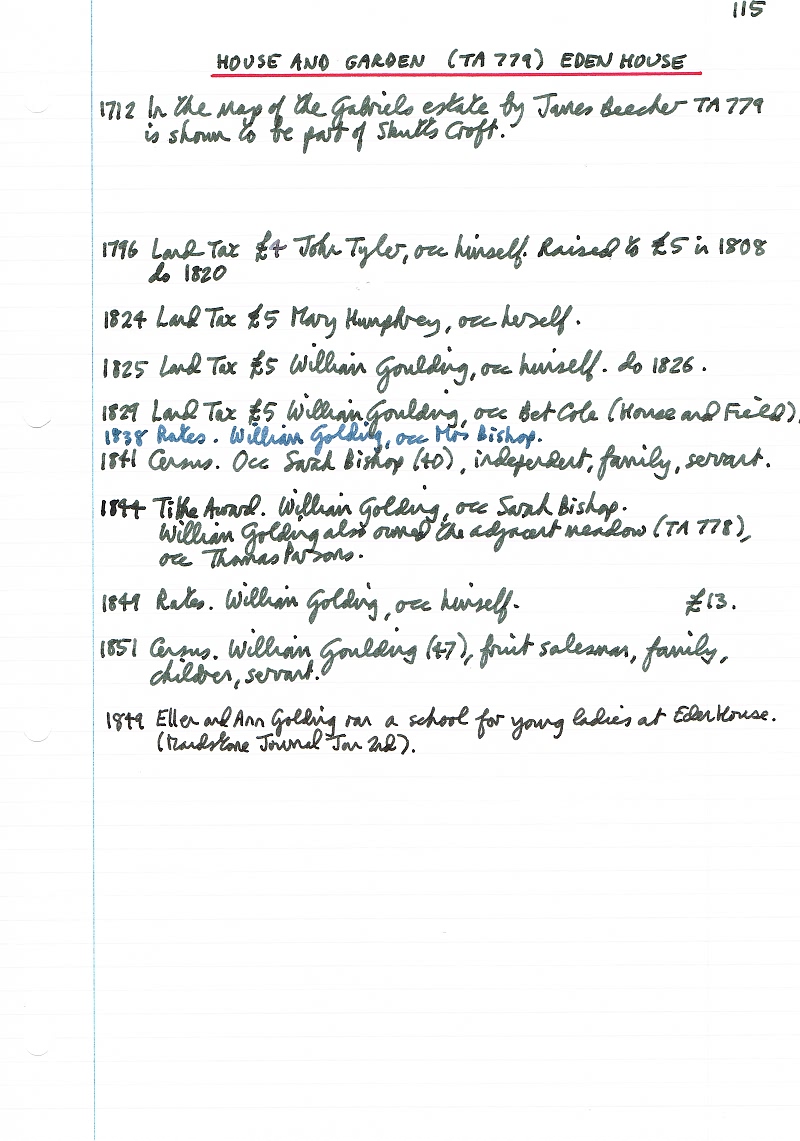 115
HOUSE AND GARDEN (TA 779) EDEN HOUSE
1712 In the map of the Gabriels estate by James Beecher TA 779
is shown to be part of Skutts Croft.
1796 Land Tax £4 John Tyler, occ himself. Raised to £5 in 1808
do 1820
1824 Land Tax £5 Mary Humphrey, occ herself.
1825 Land Tax £5 William Goulding, occ himself. do 1826.
1829 Land Tax £5 William Goulding, occ Bet Cole (House and Field).
1838 Rates. William Golding, occ Mrs Bishop.
1841 Census. Occ Sarah Bishop (40), independent, family, servant.
1844 Tithe Award. William Golding, occ Sarah Bishop.
William Golding also owned the adjacent meadow (TA 778),
occ Thomas Parsons.
1849 Rates. William Golding, occ himself. £13.
1851 Census. William Goulding (47), fruit salesman, family,
children, servant.
1849 Ellen and Ann Golding ran a school for young ladies at Eden House.
(Maidstone Journal Jan 2nd).